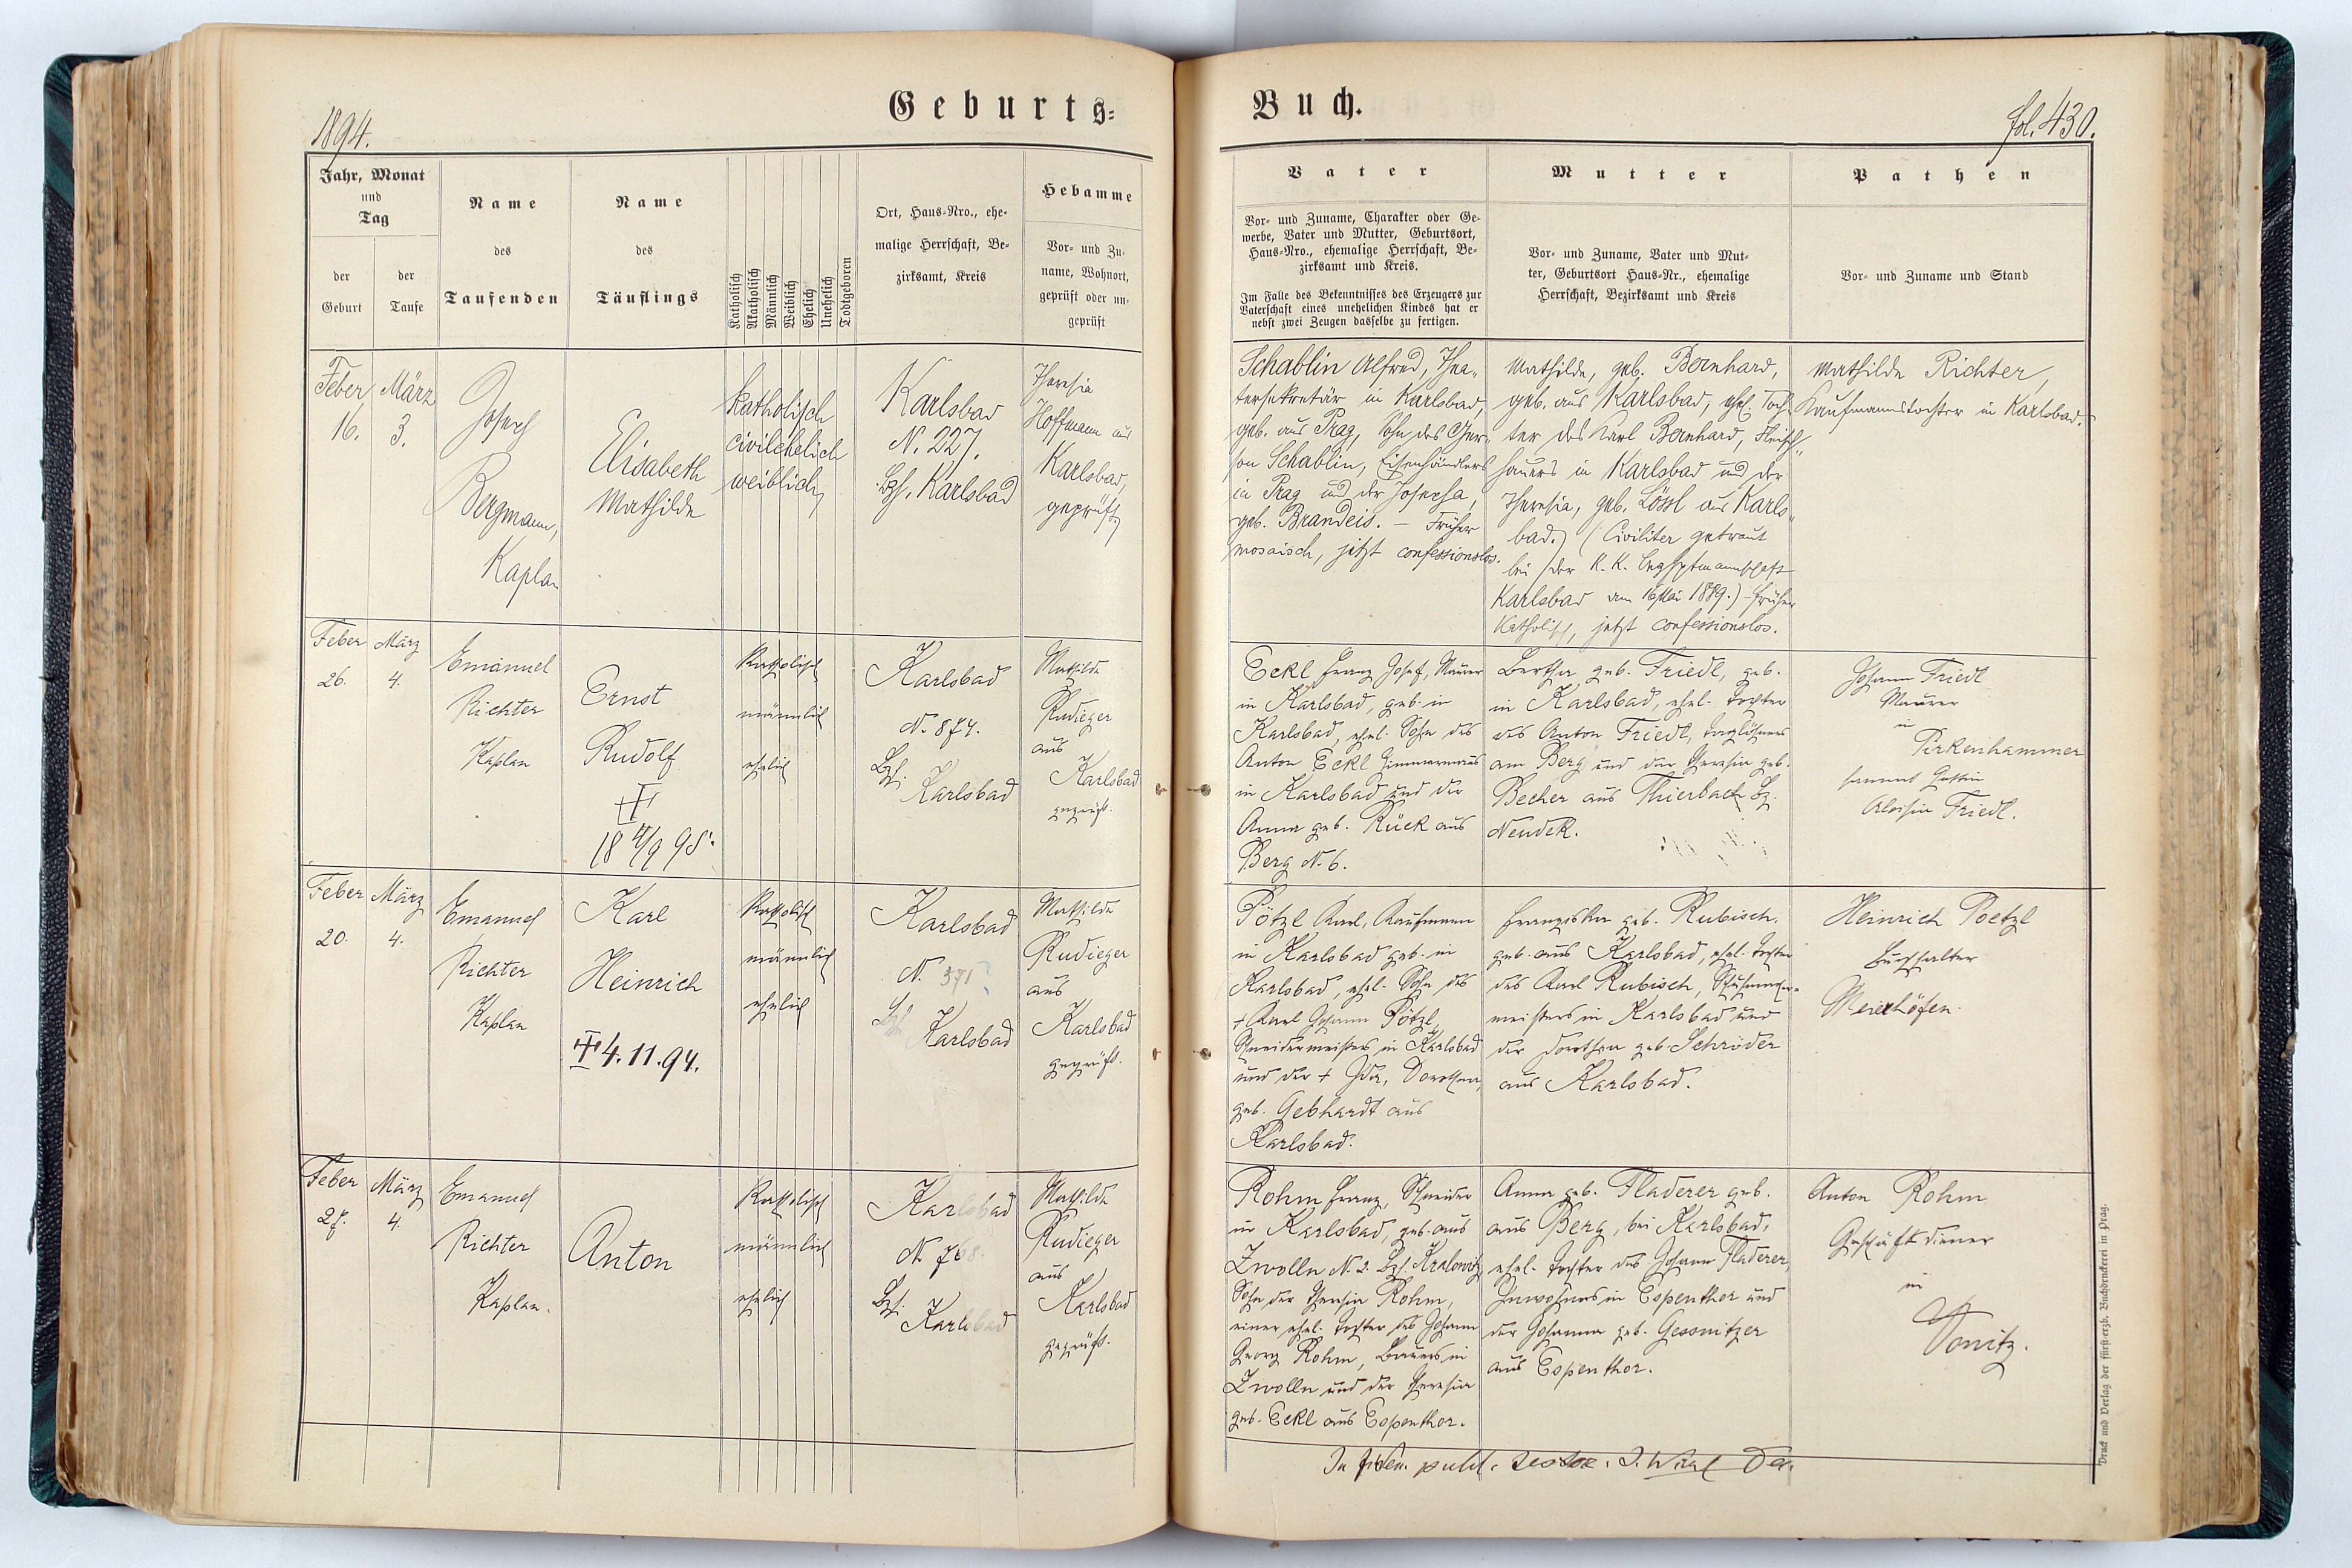 1894.
Geburts=
Buch.
fol. 430.
Jahr, Monat
und
Tag
der
Geburt
der
Taufe
Name
des
Taufenden
Name
des
Täuflings
Katholisch
Akatholisch
Männlich
Weiblich
Ehelich
Unehelich
Todtgeboren
Ort, Haus-Nro., ehe-
malige Herrschaft, Be-
zirksamt, Kreis
Hebamme
Vor- und Zu-
name, Wohnort,
geprüft oder un-
geprüft
Vater
Vor- und Zuname, Charakter oder Ge-
werbe, Vater und Mutter, Geburtsort,
Haus-Nro., ehemalige Herrschaft, Be-
zirksamt und Kreis.
Im Falle des Bekenntnisses des Erzeugers zur
Vaterschaft eines unehelichen Kindes hat er
nebst zwei Zeugen dasselbe zu fertigen.
Mutter
Vor- und Zuname, Vater und Mut-
ter, Geburtsort Haus-Nr., ehemalige
Herrschaft, Bezirksamt und Kreis
Pathen
Vor- und Zuname und Stand
Feber
16.
März
3.
Josef
Bergmann,
Kaplan
Elisabeth
Mathilde
katholisch
civilehelich
weiblich
Karlsbad
N. 227.
Bzh. Karlsbad
Theresia
Hoffmann aus
Karlsbad,
geprüft
Schablin Alfred, Thea-
tersekretär in Karlsbad,
geb. aus Prag, Sohn des Ger-
son Schablin, Eisenhändlers
in Prag und der Josefa,
geb. Brandeis. – Früher
mosaisch, jetzt confessionslos.
Mathilde, geb. Bernhard,
geb. aus Karlsbad, ehel. Toch-
ter des Karl Bernhard, Fleisch-
hauers in Karlsbad und der
Theresia, geb. Lössl aus Karls-
bad. (Civiliter getraut
bei der K. K. Bezhptmannschaft
Karlsbad am 16 Mai 1889.) – früher
katholisch, jetzt confessionslos.
Mathilde Richter,
Kaufmannstochter in Karlsbad.
Feber
26.
März
4.
Emanuel
Richter
Kaplan
Ernst
Rudolf
18 4/9 95.
Katholisch
männlich
ehelich
Karlsbad
N. 874.
Bzh.
Karlsbad
Mathilde
Rudieger
aus
Karlsbad
geprüft.
Eckl Franz Josef, Maurer
in Karlsbad, geb. in
Karlsbad, ehel. Sohn des
Anton Eckl Zimmermanns
in Karlsbad und der
Anna geb. Rück aus
Berg N. 6.
Bertha geb. Friedl, geb.
in Karlsbad, ehel. Tochter
des Anton Friedl, Taglöhners
am Berg und der Theresia geb.
Becher aus Thierbach Bz.
Neudek.
Johann Friedl
Maurer
in
Pirkenhammer
sammt Gattin
Aloisia Friedl.
Feber
20.
März
4.
Emanuel
Richter
Kaplan
Karl
Heinrich
4. 11. 94.
Katholisch
männlich
ehelich
Karlsbad
N. 571
Bzh.
Karlsbad
Mathilde
Rudieger
aus
Karlsbad
geprüft.
Pötzl Karl, Kaufmann
in Karlsbad geb. in
Karlsbad, ehel. Sohn des
† Karl Johann Pötzl,
Schneidermeisters in Karlsbad
und der † Ida, Dorothea,
geb. Gebhardt aus
Karlsbad.
Franziska geb. Rubisch.
geb. aus Karlsbad, ehel. Tochter
des Karl Rubisch, Schuhmacher-
meisters in Karlsbad und
der Dorothea geb. Schröder
aus Karlsbad.
Heinrich Poetzl
Buchhalter
Meierhöfen.
Feber
27.
März
4.
Emanuel
Richter
Kaplan.
Anton
Katholisch
männlich
ehelich
Karlsbad
N. 768.
Bzh.
Karlsbad
Mathilde
Rudieger
aus
Karlsbad
geprüft.
Rohm Franz, Schneider
in Karlsbad, geb. aus
Zwolln N. 2. Bzh. Kralowitz
Sohn der Theresia Rohm,
einer ehel. Tochter des Johann
Georg Rohm, Bauers in
Zwolln und der Theresia
geb. Eckl aus Espenthor.
Anna geb. Fladerer geb.
aus Berg, bei Karlsbad,
ehel. Tochter des Johann Fladerer,
Inwohners in Espenthor und
der Johanna geb. Gessnitzer
aus Espenthor.
Anton Rohm
Geschäftsdiener
in
Donitz.
In fidem publ.
Druck und Verlag der fürst-erzb. Buchdruckerei in Prag.